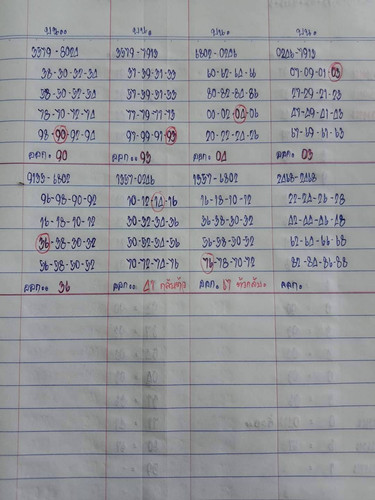 3579-8024 3579-7913 6802-0246 0246-7913
38-30-32-34 37-39-31-33 60-62-64-66 07-09-01-03
58-50-52-54 57-59-51-53 80-82-84-86 27-29-21-23
78-70-72-74 77-79-71-73 00-02-04-06 47-49-41-43
98-90-92-94 97-99-91-93 20-22-24-26 67-69-61-63
ออก. 90 ออก. 93 ออก. 04 ออก. 03
9135-6802 1357-0246 1357-6802 2468-2468
96-98-90-92 10-12-14-16 16-18-10-12 22-24-26-28
16-18-10-12 30-32-34-36 36-38-30-32 42-44-46-48
36-38-30-32 50-52-54-56 56-58-50-52 62-64-66-68
56-58-50-52 70-72-74-76 76-78-70-72 82-84-86-88
ออก.. 36 ออก.. 47 ออก.. 67 ออก.